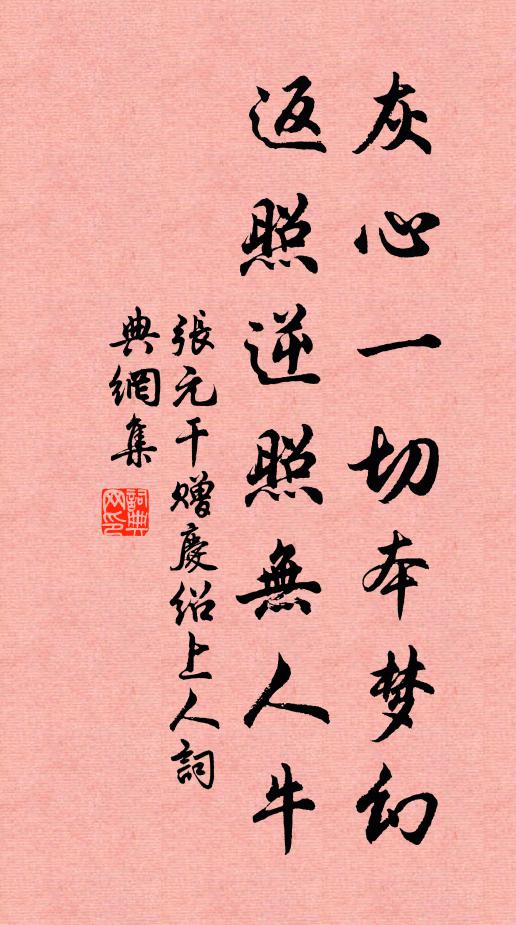 灰心一切本梦幻
返照逆照無人牛
張元干贈慶绍上人詞
典網集
詞典网印